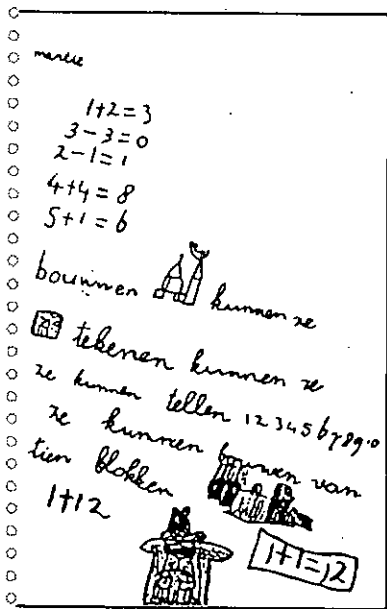 marlie
1+2=3
3-3=0
2-1=1
4+4=8
5+1=6
bouwen kunnen ze
tekenen kunnen ze
ze kunnen tellen 12345678910
ze kunnen bouwen van
tien blokken
1+12
1+1=,2